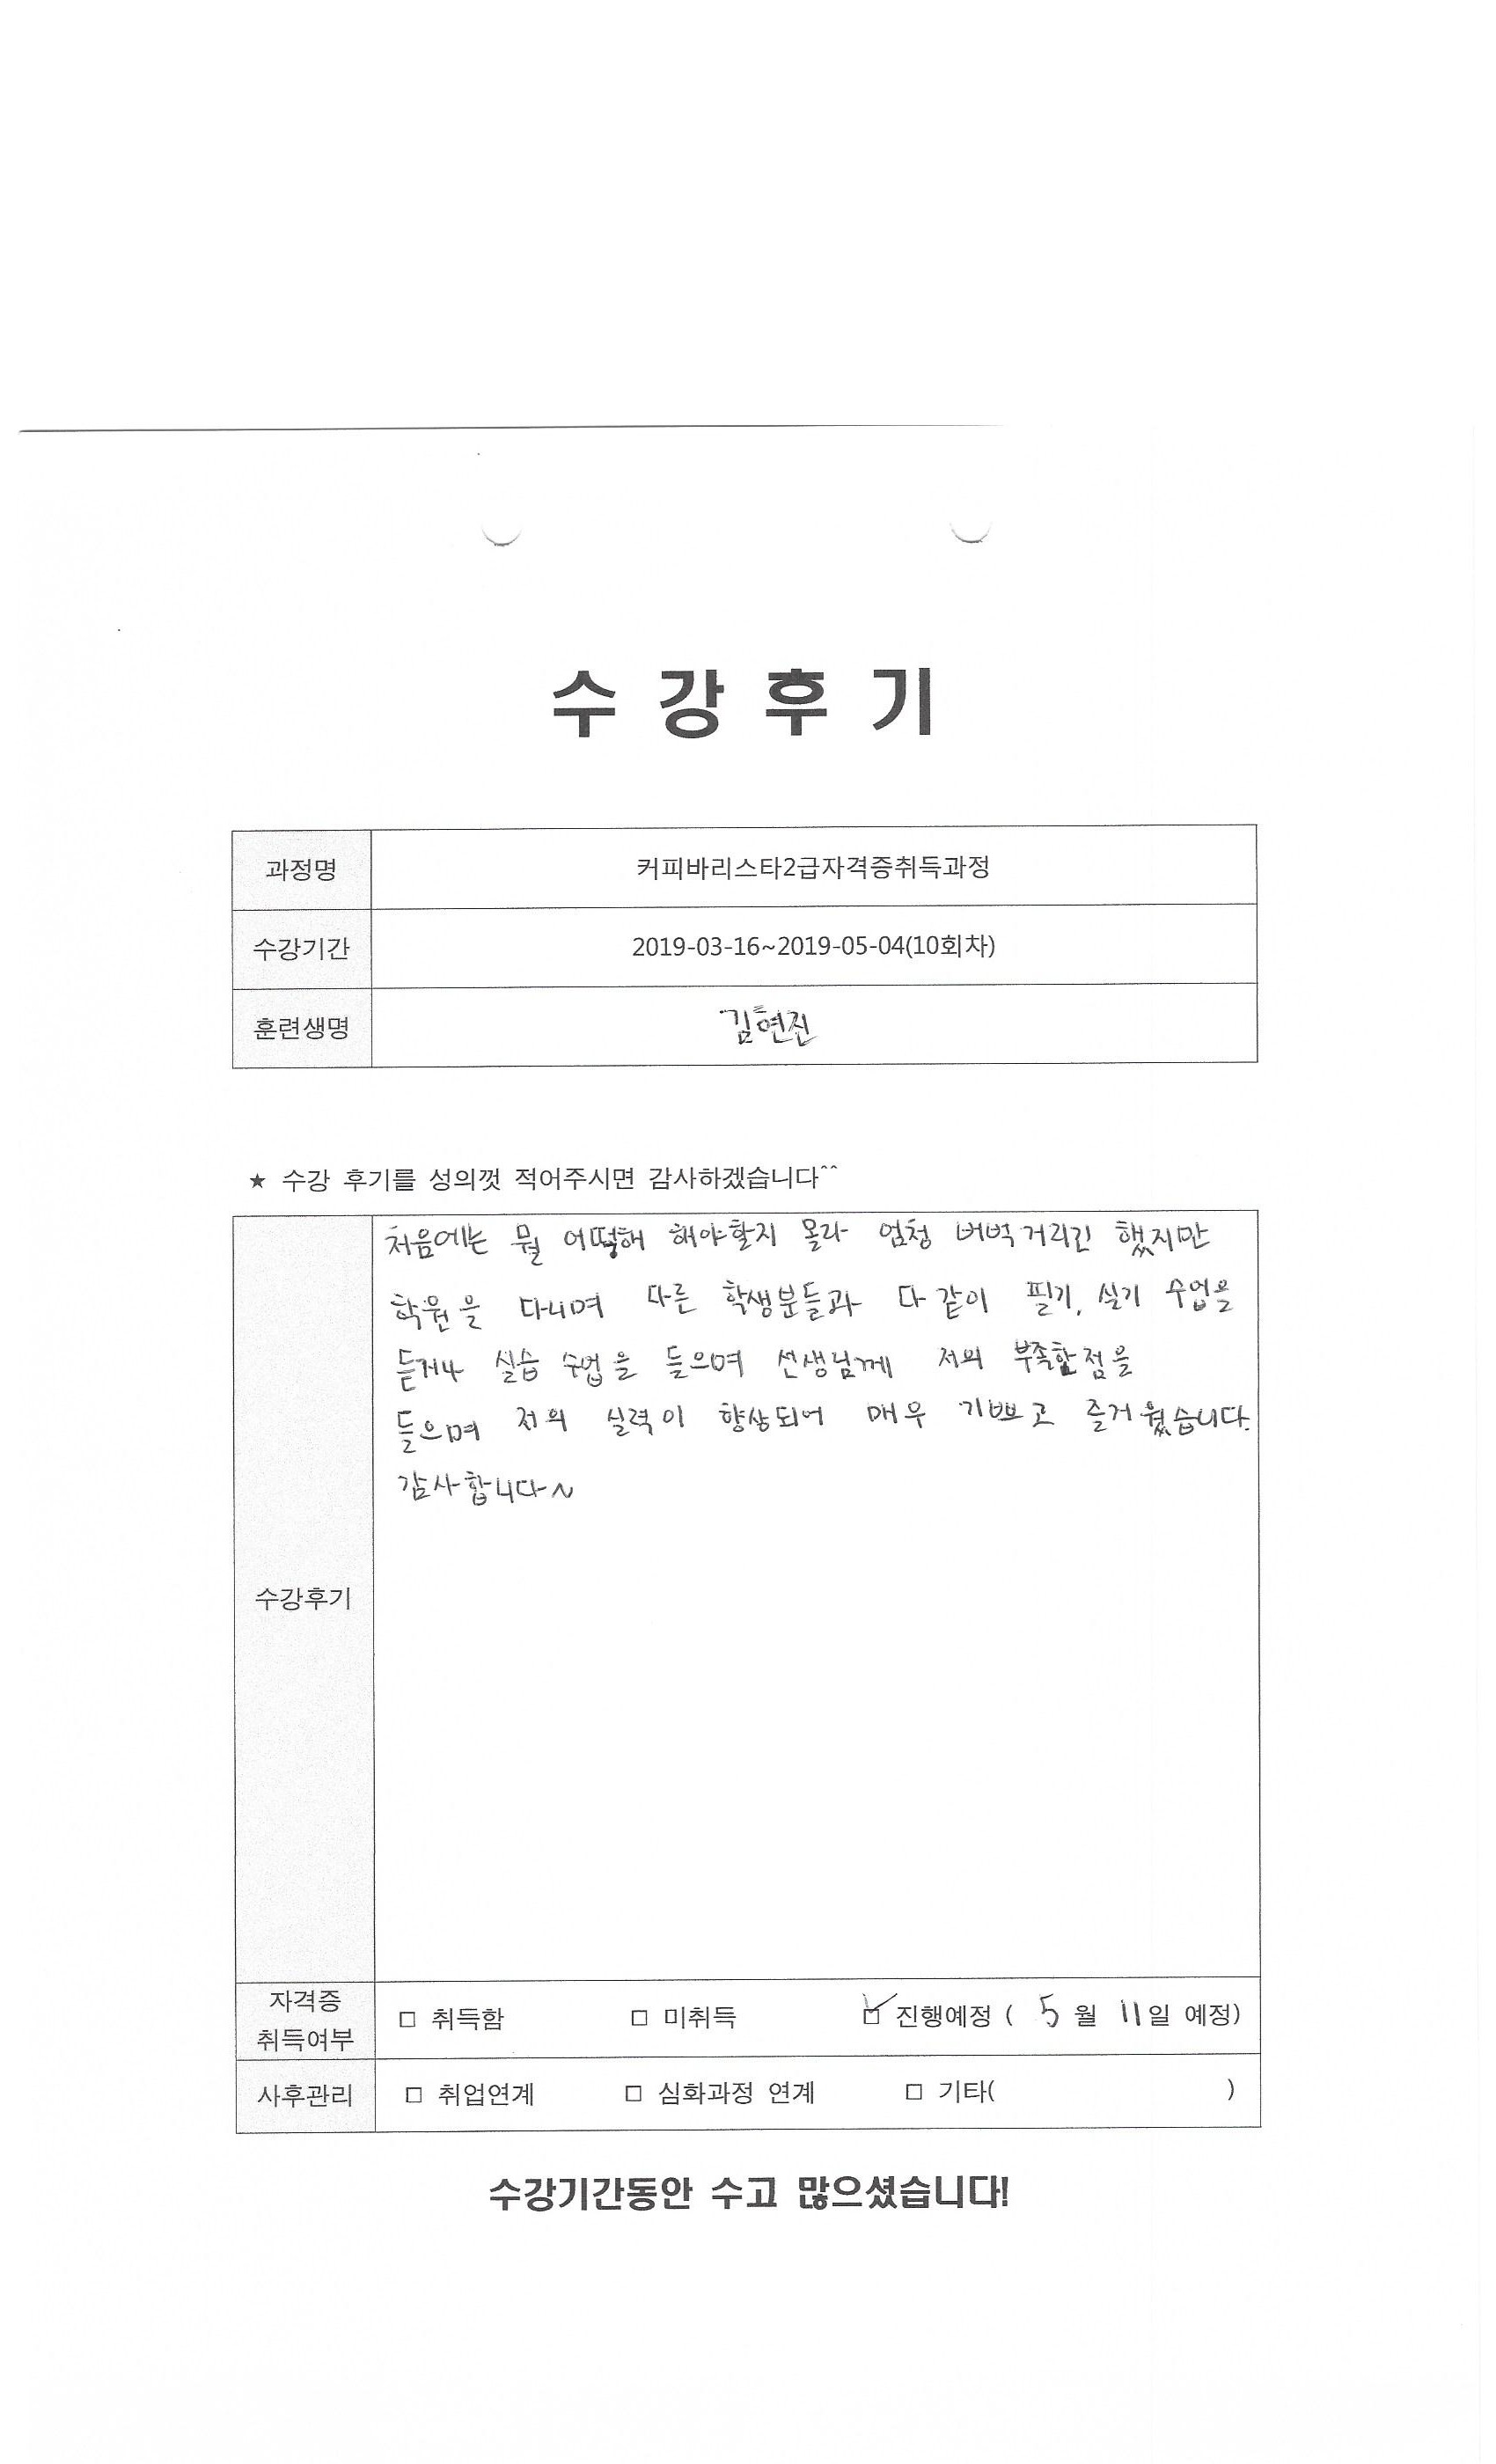 수 강 후 기
과정명 커피바리스타2급자격증취득과정
수강기간 2019-03-16~2019-05-04(10회차)
훈련생명 김현진
★ 수강 후기를 성의껏 적어주시면 감사하겠습니다^^
처음에는 뭘 어떡해 해야할지 몰라 엄청 버벅거리긴 했지만
학원을 다니며 다른 학생분들과 다 같이 필기, 실기 수업을
듣거나 실습 수업을 들으며 선생님께 저의 부족한점을
들으며 저의 실력이 향상되어 매우 기쁘고 즐거웠습니다.
감사합니다~
수강후기
자격증
취득여부
□ 취득함 □ 미취득 ☑ 진행예정 ( 5 월 11일 예정)
사후관리 □ 취업연계 □ 심화과정 연계 □ 기타( )
수강기간동안 수고 많으셨습니다!